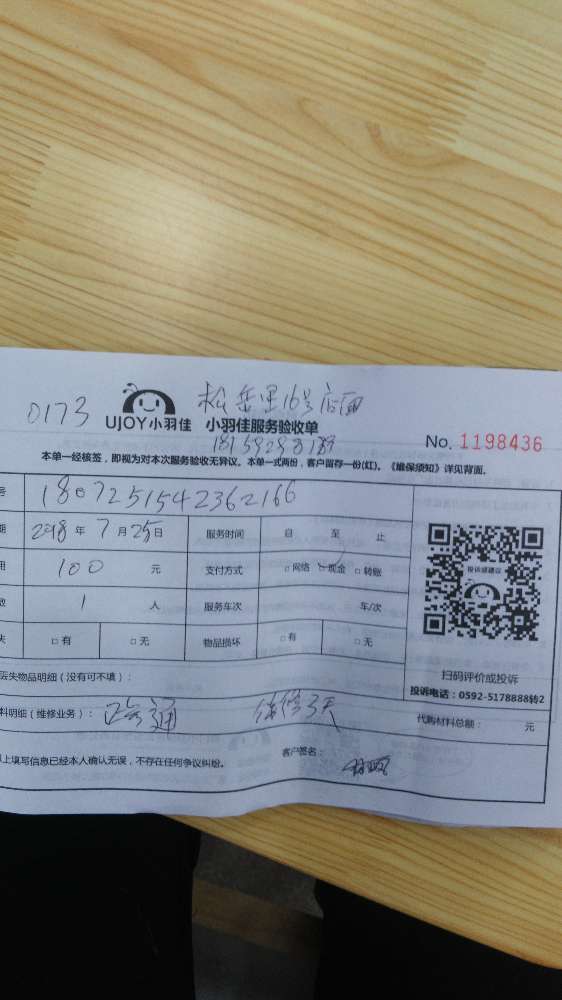 0173 UJOY小羽佳 小羽佳服务验收单 里16号店面
No. 1198436
本单一经核签，即视为对本次服务验收无异议。本单一式两份，客户留存一份(红)。《维保须知》详见背面。
号 1807251542362166
期 2018 年 7 月 25 日 服务时间 自 至 止
用 100 元 支付方式 □ 网络 □ 现金 □ 转账
数 1 人 服务车次 车/次
失 □ 有 □ 无 物品损坏 □ 有 □ 无
投诉或建议
扫码评价或投诉
投诉电话：0592-5178888转2
丢失物品明细（没有可不填）：
料明细（维修业务）： 通 保修3天 代购材料总额： 元
以上填写信息已经本人确认无误，不存在任何争议纠纷。 客户签名：